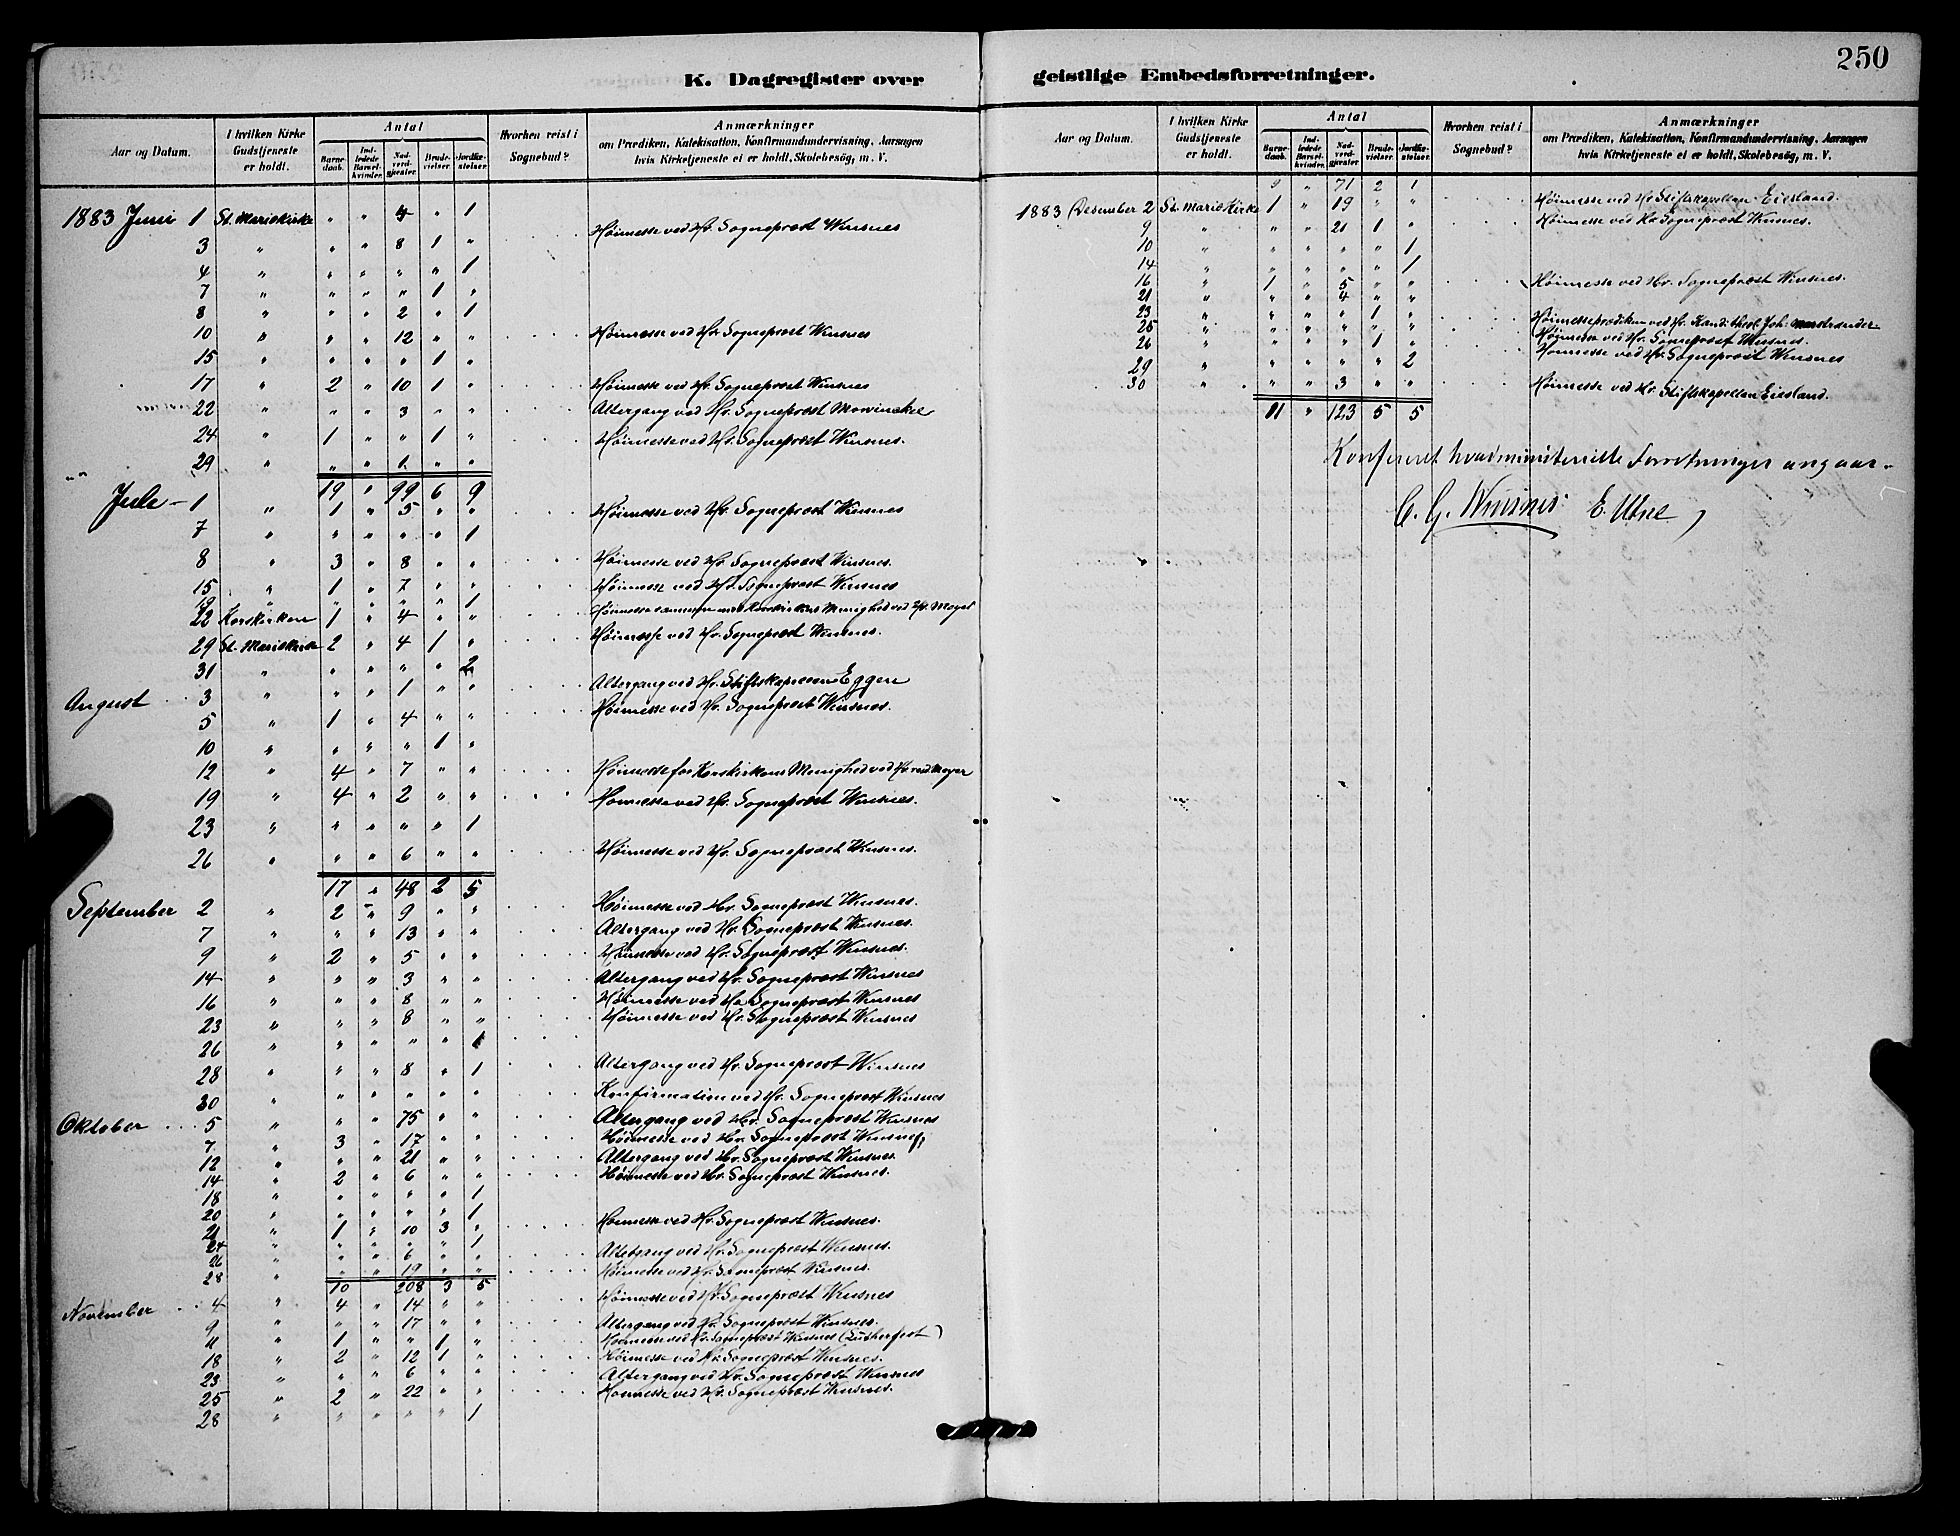 250
K. Dagregister over geistlige Embedsforretninger.
Aar og Datum. | I hvilken Kirke Gudstjeneste er holdt. | Antal | Barnedaab. | Indledede Barselkvinder. | Nadverdgjæster. | Brudevielser. | Jordfæstelser. | Hvorhen reist i Sognebud? | Anmærkninger om Prædiken, Katekisation, Konfirmandundervisning, Aarsagen hvis Kirketjeneste ei er holdt, Skolebesøg, m. V.
1883 Juni 1 St. Mariekirke " " 4 " 1
3 " " " 8 1 " Høimesse ved Hr. Sogneprest Winsnes
4 " " " " " 1
7 " " " " 1 "
8 " " " 2 " 1
10 " " " 12 " " Høimesse ved Hr. Sogneprest Winsnes
15 " " " " 1 "
17 " 2 " 10 1 " Høimesse ved Hr. Sogneprest Winsnes
22 " " " 3 " " Altergang ved Hr. Sogneprest Mowinckel
24 " 1 " " 1 " Høimesse ved Hr. Sogneprest Winsnes.
29 " " " 1 " "
19 " 99 6 9
Jule - 1 " 1 " 5 " " Høimesse ved Hr. Sogneprest Winsnes
7 " " " " " 1
8 " 3 " 8 " " Høimesse ved Hr. Sogneprest Winsnes.
15 " 1 " 7 " " Høimesse ved Hr. Sogneprest Winsnes
19 " " " " " 1
22 Korskirken 1 " 4 " " Høimesse Korskirkens Menighed ved Hr. Meyer
29 St. Mariekirke 2 " 4 1 " Høimesse ved Hr. Sogneprest Winsnes.
31 " " " " " 2
August 3 " " " 1 " " Altergang ved Hr. Stiftskapellan Eggen
5 " 1 " 4 " " Høimesse ved Hr. Sogneprest Winsnes.
10 " " " " 1 "
12 " 4 " 7 " " Høimesse for Korskirkens Menighed ved Meyer
19 " 4 " 2 " " Høimesse ved Hr. Sogneprest Winsnes.
23 " " " " " 1
26 " " " 6 " " Høimesse ved Hr. Sogneprest Winsnes.
17 " 48 2 5
September 2 " 2 " 9 " " Høimesse ved Hr. Sogneprest Winsnes.
7 " " " 13 " " Altergang ved Hr. Sogneprest Winsnes.
9 " 2 " 5 " " Høimesse ved Hr. Sogneprest Winsnes.
14 " " " 3 " " Altergang ved Hr. Sogneprest Winsnes
16 " " " 8 " " Høimesse ved Hr. Sogneprest Winsnes
23 " " " 8 " " Høimesse ved Hr. Sogneprest Winsnes
26 " " " " " 1
28 " " " 8 " 1 Altergang ved Hr. Sogneprest Winsnes
30 " " " " " " Konfirmation ved Hr. Sogneprest Winsnes
Oktober 5 " " " 75 " " Altergang ved Hr. Sogneprest Winsnes
7 " 3 " 17 " " Høimesse ved Hr. Sogneprest Winsnes
12 " " " 21 " " Altergang ved Hr. Sogneprest Winsnes
14 " 2 " 6 " " Høimesse ved Hr. Sogneprest Winsnes.
18 " " " " " 1
20 " " " " " 1
21 " 1 " 10 3 " Høimesse ved Hr. Sogneprest Winsnes.
24 " " " " " 1
26 " " " 6 " " Altergang ved Hr. Sogneprest Winsnes.
28 " " " 19 " " Høimesse ved Hr. Sogneprest Winsnes.
10 208 3 5
November 4 " 4 " 14 " " Høimesse ved Hr. Sogneprest Winsnes
9 " " " 17 " " Altergang ved Hr. Sogneprest Winsnes.
11 " 1 " " 1 " Høimesse ved Hr. Sogneprest Winsnes (Lutherfest)
18 " 2 " 12 1 " Høimesse ved Hr. Sogneprest Winsnes.
23 " " " 6 " " Altergang ved Hr. Sogneprest Winsnes
25 " 2 " 22 " " Høimesse ved Hr. Sogneprest Winsnes.
28 " " " " " 1
Aar og Datum. | I hvilken Kirke Gudstjeneste er holdt. | Antal | Barnedaab. | Indledede Barselkvinder. | Nadverdgjæster. | Brudevielser. | Jordfæstelser. | Hvorhen reist i Sognebud? | Anmærkninger om Prædiken, Katekisation, Konfirmandundervisning, Aarsagen hvis Kirketjeneste ei er holdt, Skolebesøg, m. V.
9 " 71 2 1
1883 Desember 2 St. Marie Kirke 1 " 19 " " Høimesse ved Hr. Stiftskapellan Eiesland.
9 " " " 21 1 " Høimesse ved Hr. Sogneprest Winsnes.
10 " " " " " 1
14 " " " " " 1
16 " 1 " 5 " " Høimesse ved Hr. Sogneprest Winsnes.
21 " " " 4 " "
23 " " " " 1 " Høimesseprædiken ved Hr. Kand. theol. Joh.
25 " " " " " " Høimesse ved Hr. Sogneprest Winsnes.
26 " " " " 1 " Høimesse ved Hr. Sogneprest Winsnes
29 " " " " " 2
30 " " " 3 " " Høimesse ved Hr. Stiftskapellan Eiesland.
11 " 123 5 5
Konfereret hvad ministerielle Forretninger angaar.
C. G. Winsnes E. Utne